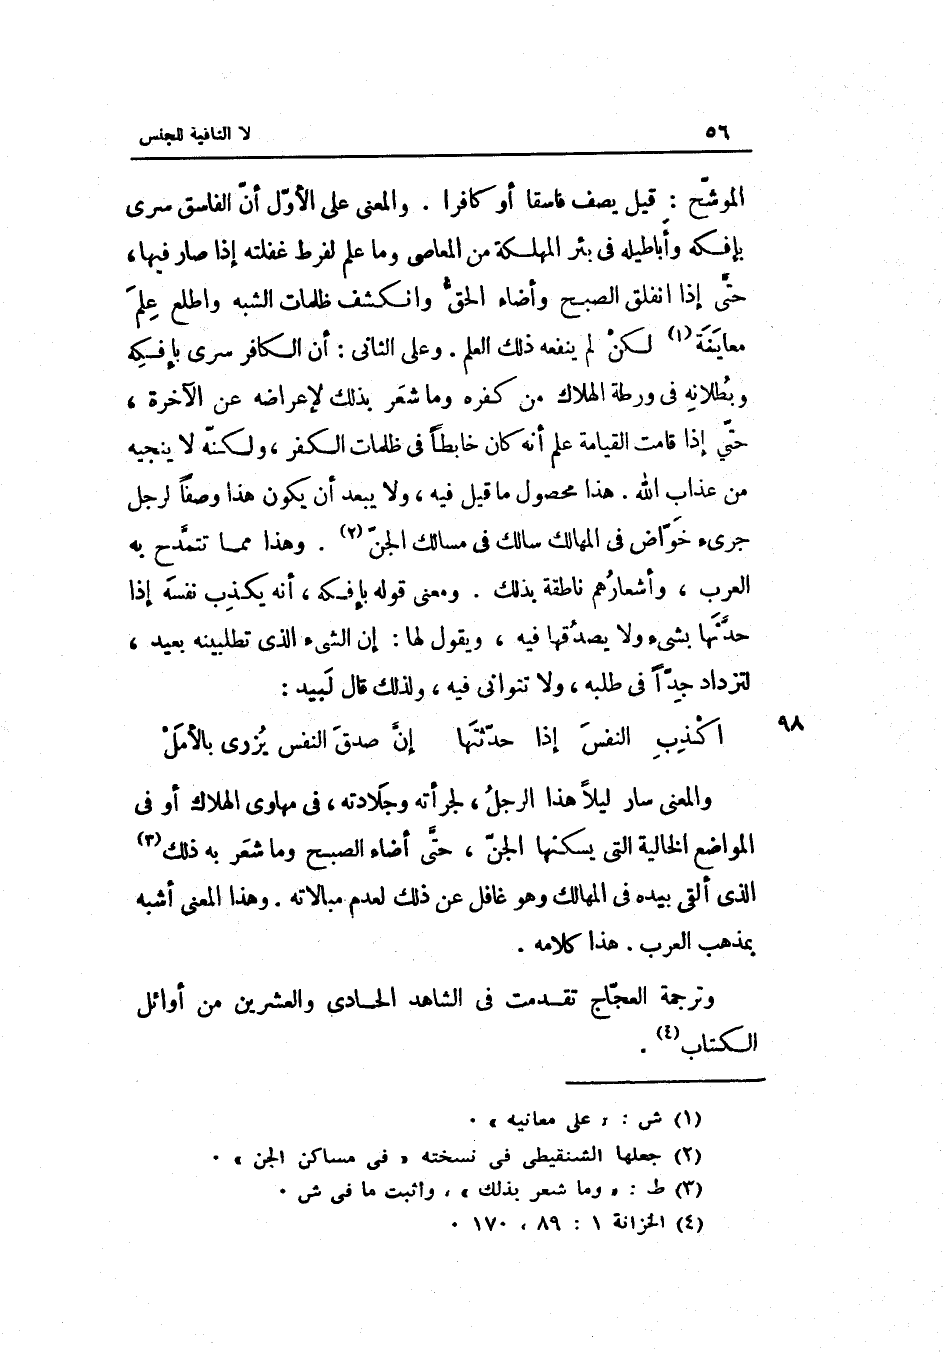 ٥٦ لا النافية للجنس
الموشّح : قيل يصف فاسقا أو كافرا . والمعنى على الأوّل أنّ الفاسق سرى
بإفكه وأباطيله فى بئر المهلكة من المعاصى وما علم لفرط غفلته إذا صار فيها،
حتَّى إذا انفلق الصبح وأضاء الحقُّ وانكشف ظلمات الشبه واطلع عِلمَ
معايَنَة (١) لكنْ لم ينفعه ذلك العلم . وعلى الثانى : أن الكافر سرى بإفكِه
وبُطلانِه فى ورطة الهلاك من كفره وما شعَر بذلك لإعراضه عن الآخرة ،
حتّى إذا قامت القيامة علم أنه كان خابطاً فى ظلمات الكفر ، ولكنّه لا ينجيه
من عذاب الله . هذا محصول ما قيل فيه ، ولا يبعد أن يكون هذا وصفاً لرجل
جرىء خَوّاض فى المهالك سالك فى مسالك الجنّ (٢) . وهذا مما تتمدَّح به
العرب ، وأشعارُهم ناطقة بذلك . ومعنى قوله بإفكه ، أنه يكذب نفسَه إذا
حدَّثَها بشىء ولا يصدُقها فيه ، ويقول لها : إن الشىء الذى تطلبينه بعيد ،
لتزداد جِدّاً فى طلبه ، ولا تتوانى فيه ، ولذلك قال لَبيد :
٩٨ اكْذِبِ النفسَ إذا حدّثتَها إنَّ صدقَ النفس يُزرى بالأملْ
والمعنى سار ليلاً هذا الرجلُ ، لجرأته وجَلادته ، فى مهاوى الهلاك أو فى
المواضع الخالية التى يسكنها الجنّ ، حتَّى أضاء الصبح وما شعَر به ذلك (٣)
الذى ألقى بيده فى المهالك وهو غافل عن ذلك لعدم مبالاته . وهذا المعنى أشبه
بمذهب العرب . هذا كلامه .
وترجمة العجّاج تقدمت فى الشاهد الحادى والعشرين من أوائل
الكتاب (٤) .
(١) ش : « على معانيه » .
(٢) جعلها الشنقيطى فى نسخته « فى مساكن الجن » .
(٣) ط : « وما شعر بذلك » ، وأثبت ما فى ش .
(٤) الخزانة ١ : ٨٩ ، ١٧٠ .